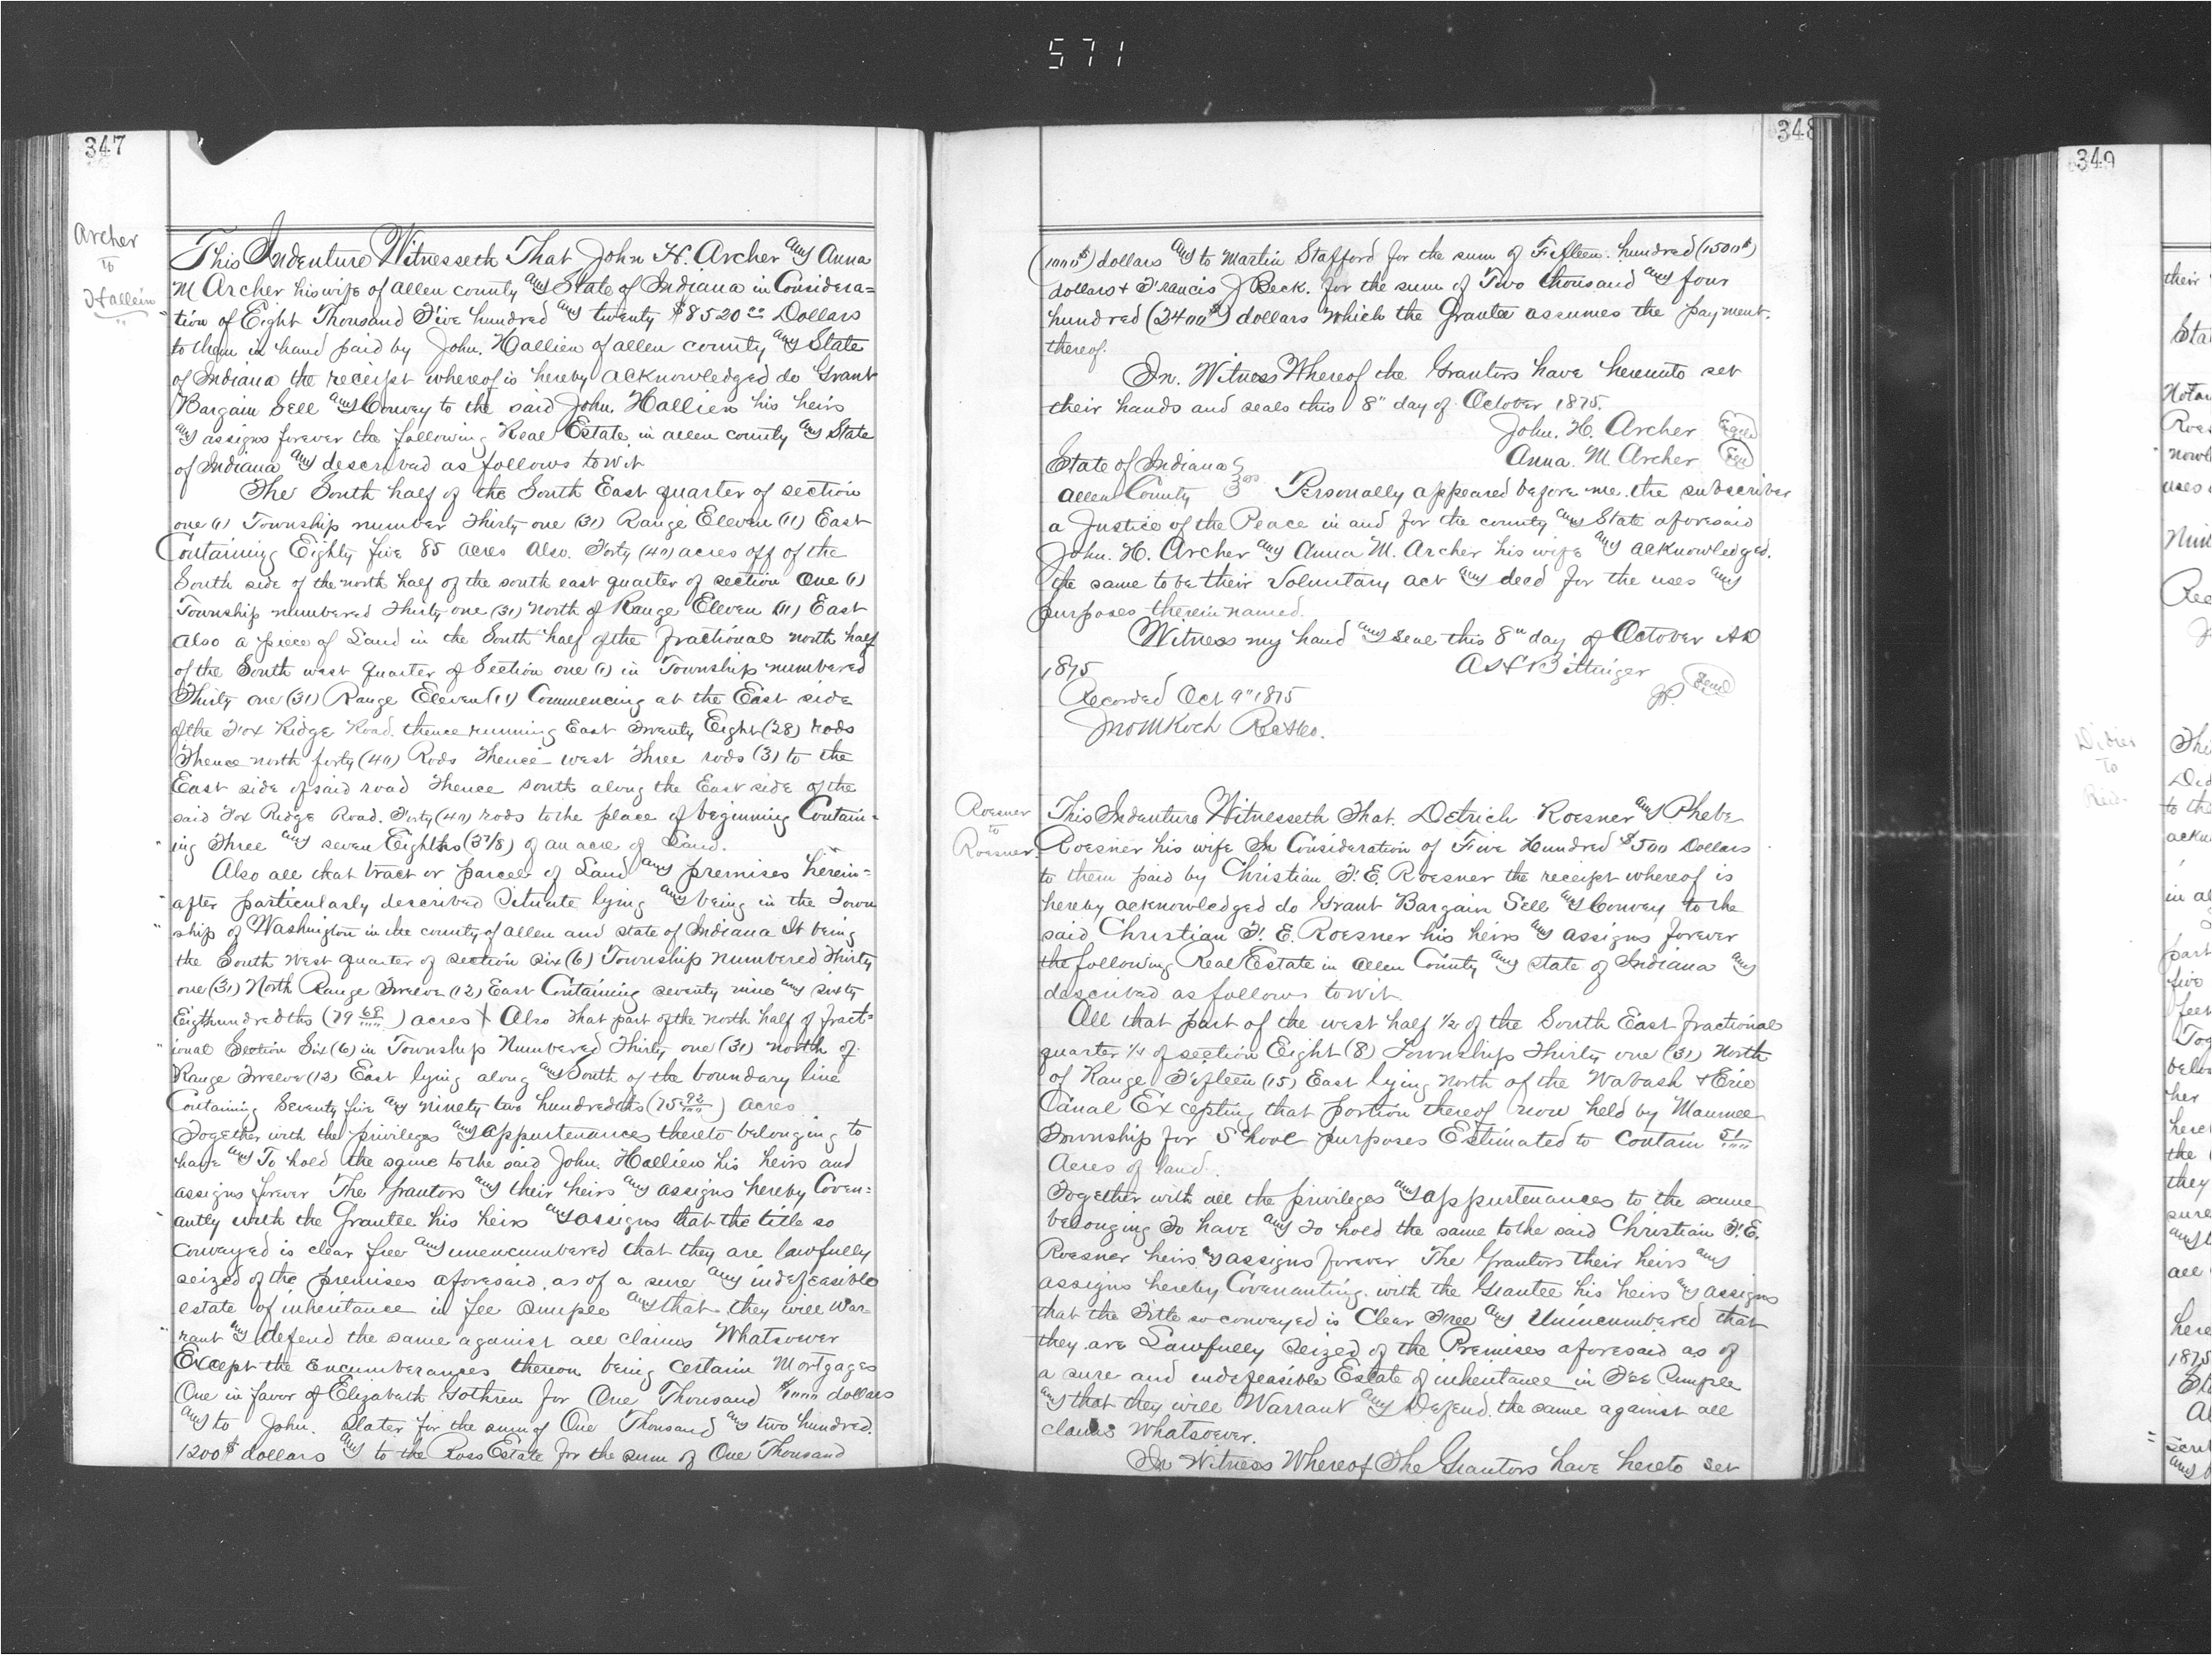 571
347
Archer
to
Hallien
This Indenture Witnesseth That John H. Archer and Anna
M Archer his wife of allen county and State of Indiana in Considera=
tion of Eight Thousand Five hundred and twenty $8520 00 Dollars
to them in hand paid by John. Hallien of allen county and State
of Indiana the receipt whereof is hereby acknowledged do Grant
Bargain Sell and Convey to the said John. Hallien his heirs
and assigns forever the following Real Estate in allen county and State
of Indiana and described as follows towit
The South half of the South East quarter of section
one (1) Township number Thirty one (31) Range Eleven (11) East
Containing Eighty five 85 acres Also. Forty (40) acres off of the
South side of the north half of the south east quarter of section One (1)
Township numbered Thirty one (31) North of Range Eleven (11) East
Also a piece of Land in the South half of the fractional north half
of the South west quarter of Section one (1) in Township numbered
Thirty one (31) Range Eleven (11) Commencing at the East side
of the Fox Ridge Road. thence running East Twenty Eight (28) rods
Thence north forty (40) Rods Thence west Three rods (3) to the
East side of said road Thence south along the East side of the
said Fox Ridge Road. Forty (40) rods to the place of beginning Contain=
ing Three and seven Eighths (3 7/8) of an acre of Land.
Also all that tract or parcel of Land and premises herein=
after particularly described Situate lying and being in the Town
ship of Washington in the county of allen and state of Indiana It being
the South West quarter of section six (6) Township numbered Thirty
one (31) North Range Twelve (12) East Containing seventy nine and sixty
Eigthundredths (79 68/100) acres Also that part of the north half of fract=
ional Section Six (6) in Township Numbered Thirty one (31) north of
Range Twelve (12) East lying along and South of the boundary line
Containing Seventy five and ninety two hundredths (75 92/100) acres
Together with the privileges and appurtenances thereto belonging to
have and To hold the same to the said John. Hallien his heirs and
assigns forever The grantors and their heirs and assigns hereby Coven=
antly with the Grantee his heirs and assigns that the title so
conveyed is clear free and unencumbered that they are lawfully
seized of the premises aforesaid as of a sure and indefeasible
estate of inheritance in fee simple and that they will War=
rant and defend the same against all claims Whatsoever
Except the encumberances thereon being certain Mortgages
One in favor of Elizabeth for One Thousand $1000 dollars
and to John. Slater for the sum of One Thousand and two hundred.
1200$ dollars and to the Ross Estate for the sum of One Thousand
348
(1000$) dollars and to Martin Stafford for the sum of Fifteen. hundred (1500$)
dollars + Francis J Beck. for the sum of Two thousand and four
hundred (2400$) dollars which the Grantee assumes the payment.
thereof.
In. Witness Whereof the Grantors have hereunto set
their hands and seals this 8" day of October 1875.
John. H. Archer
Anna. M Archer
State of Indiana
Allen County ss Personally appeared before me. the subscriber
a Justice of the Peace in and for the county and State aforesaid
John. H. Archer and Anna M. Archer his wife and acknowledged.
the same to be their voluntary act and deed for the uses and
purposes therein named.
Witness my hand and seal this 8" day of October AD
1875 Bittinger
JP. Seal
Recorded Oct 9" 1875
Jno M Koch
Roesner
to
Roesner.
This Indenture Witnesseth That. Detrich Roesner and Phebe
Roesner his wife In Consideration of Five Hundred $500 Dollars
to them paid by Christian F. E. Roesner the receipt whereof is
hereby acknowledged do Grant Bargain Sell and Convey to the
said Christian F. E. Roesner his heirs and assigns forever
the following Real Estate in Allen County and state of Indiana and
described as follows towit.
All that part of the west half 1/2 of the South East fractional
quarter 1/4 of section Eight (8) Township Thirty one (31) North
of Range Fifteen (15) East lying North of the Wabash + Erie
Canal Excepting that portion thereof now held by Maumee
Township for School purposes Estimated to contain 51/100
Acres of land.
Together with all the privileges and appurtenances to the same
belonging To have and To hold the same to the said Christian F. E.
Roesner heirs and assigns forever The Grantors their heirs and
assigns hereby Covenanting. with the Grantee his heirs and assigns
that the Title so conveyed is Clear Free and Unincumbered that
they are Lawfully Seized of the Premises aforesaid as of
a sure and indefeasible Estate of inheritance in Fee Simple
and that they will Warrant and Defend. the same against all
claims Whatsoever.
In Witness Whereof The Grantors have hereto set
349
Didier
To
their